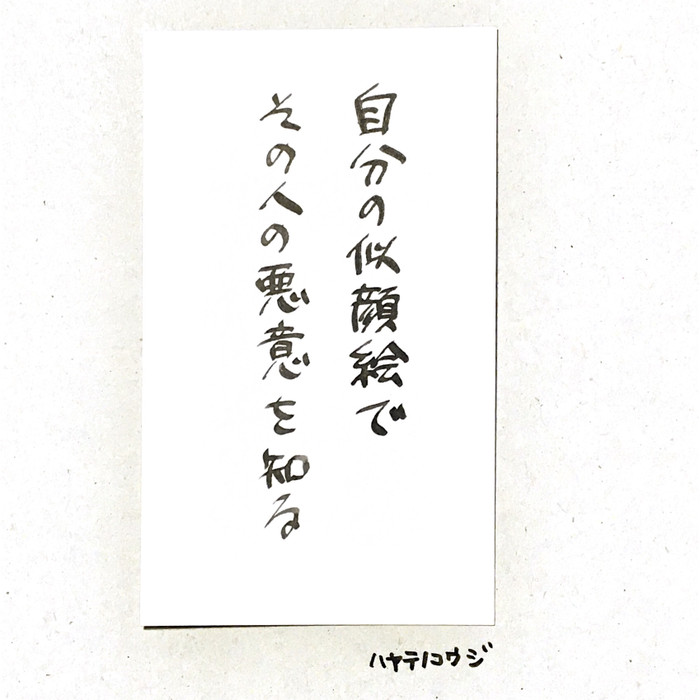 自分の似顔絵で
その人の悪意を知る
ハヤテノコウジ